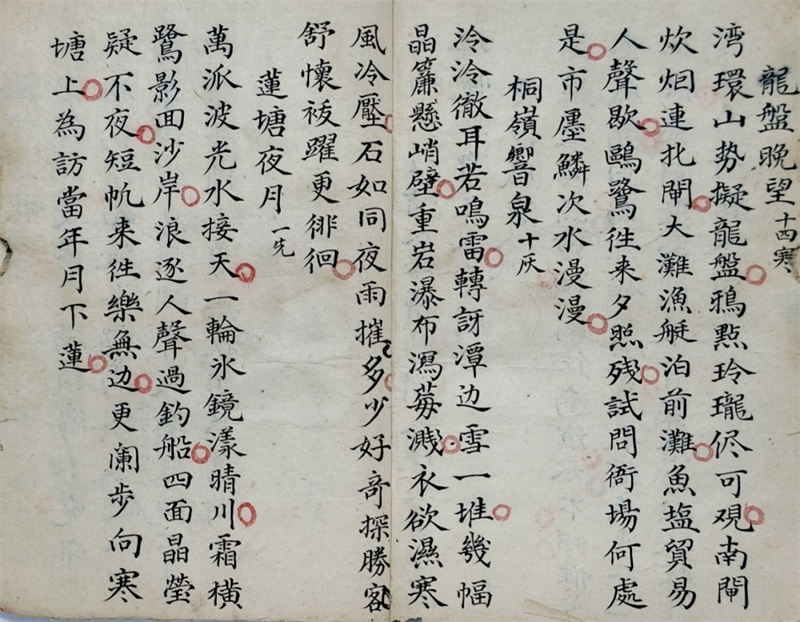 龍盤晚望十四寒
湾環山勢擬龍盤鴉點玲瓏侭可观南閘
炊烟連北閘大灘漁艇泊前灘魚塩貿易
人聲歇鷗鷺徃来夕照残試問衙場何處
是市廛鱗次水漫漫
桐嶺響泉十灰
泠泠徹耳若鳴雷轉訝潭边雪一堆幾幅
晶簾懸峭壁重岩瀑布瀉莓溅衣欲濕寒
風冷壓石如同夜雨摧多少好奇探勝客
舒懷袯躍更徘徊
蓮塘夜月一先
萬派波光水接天一輪氷鏡漾晴川霜橫
鷺影囬沙岸浪逐人聲過釣船四面晶瑩
疑不夜短帆来徃樂無边更闌步向寒
塘上為訪當年月下蓮